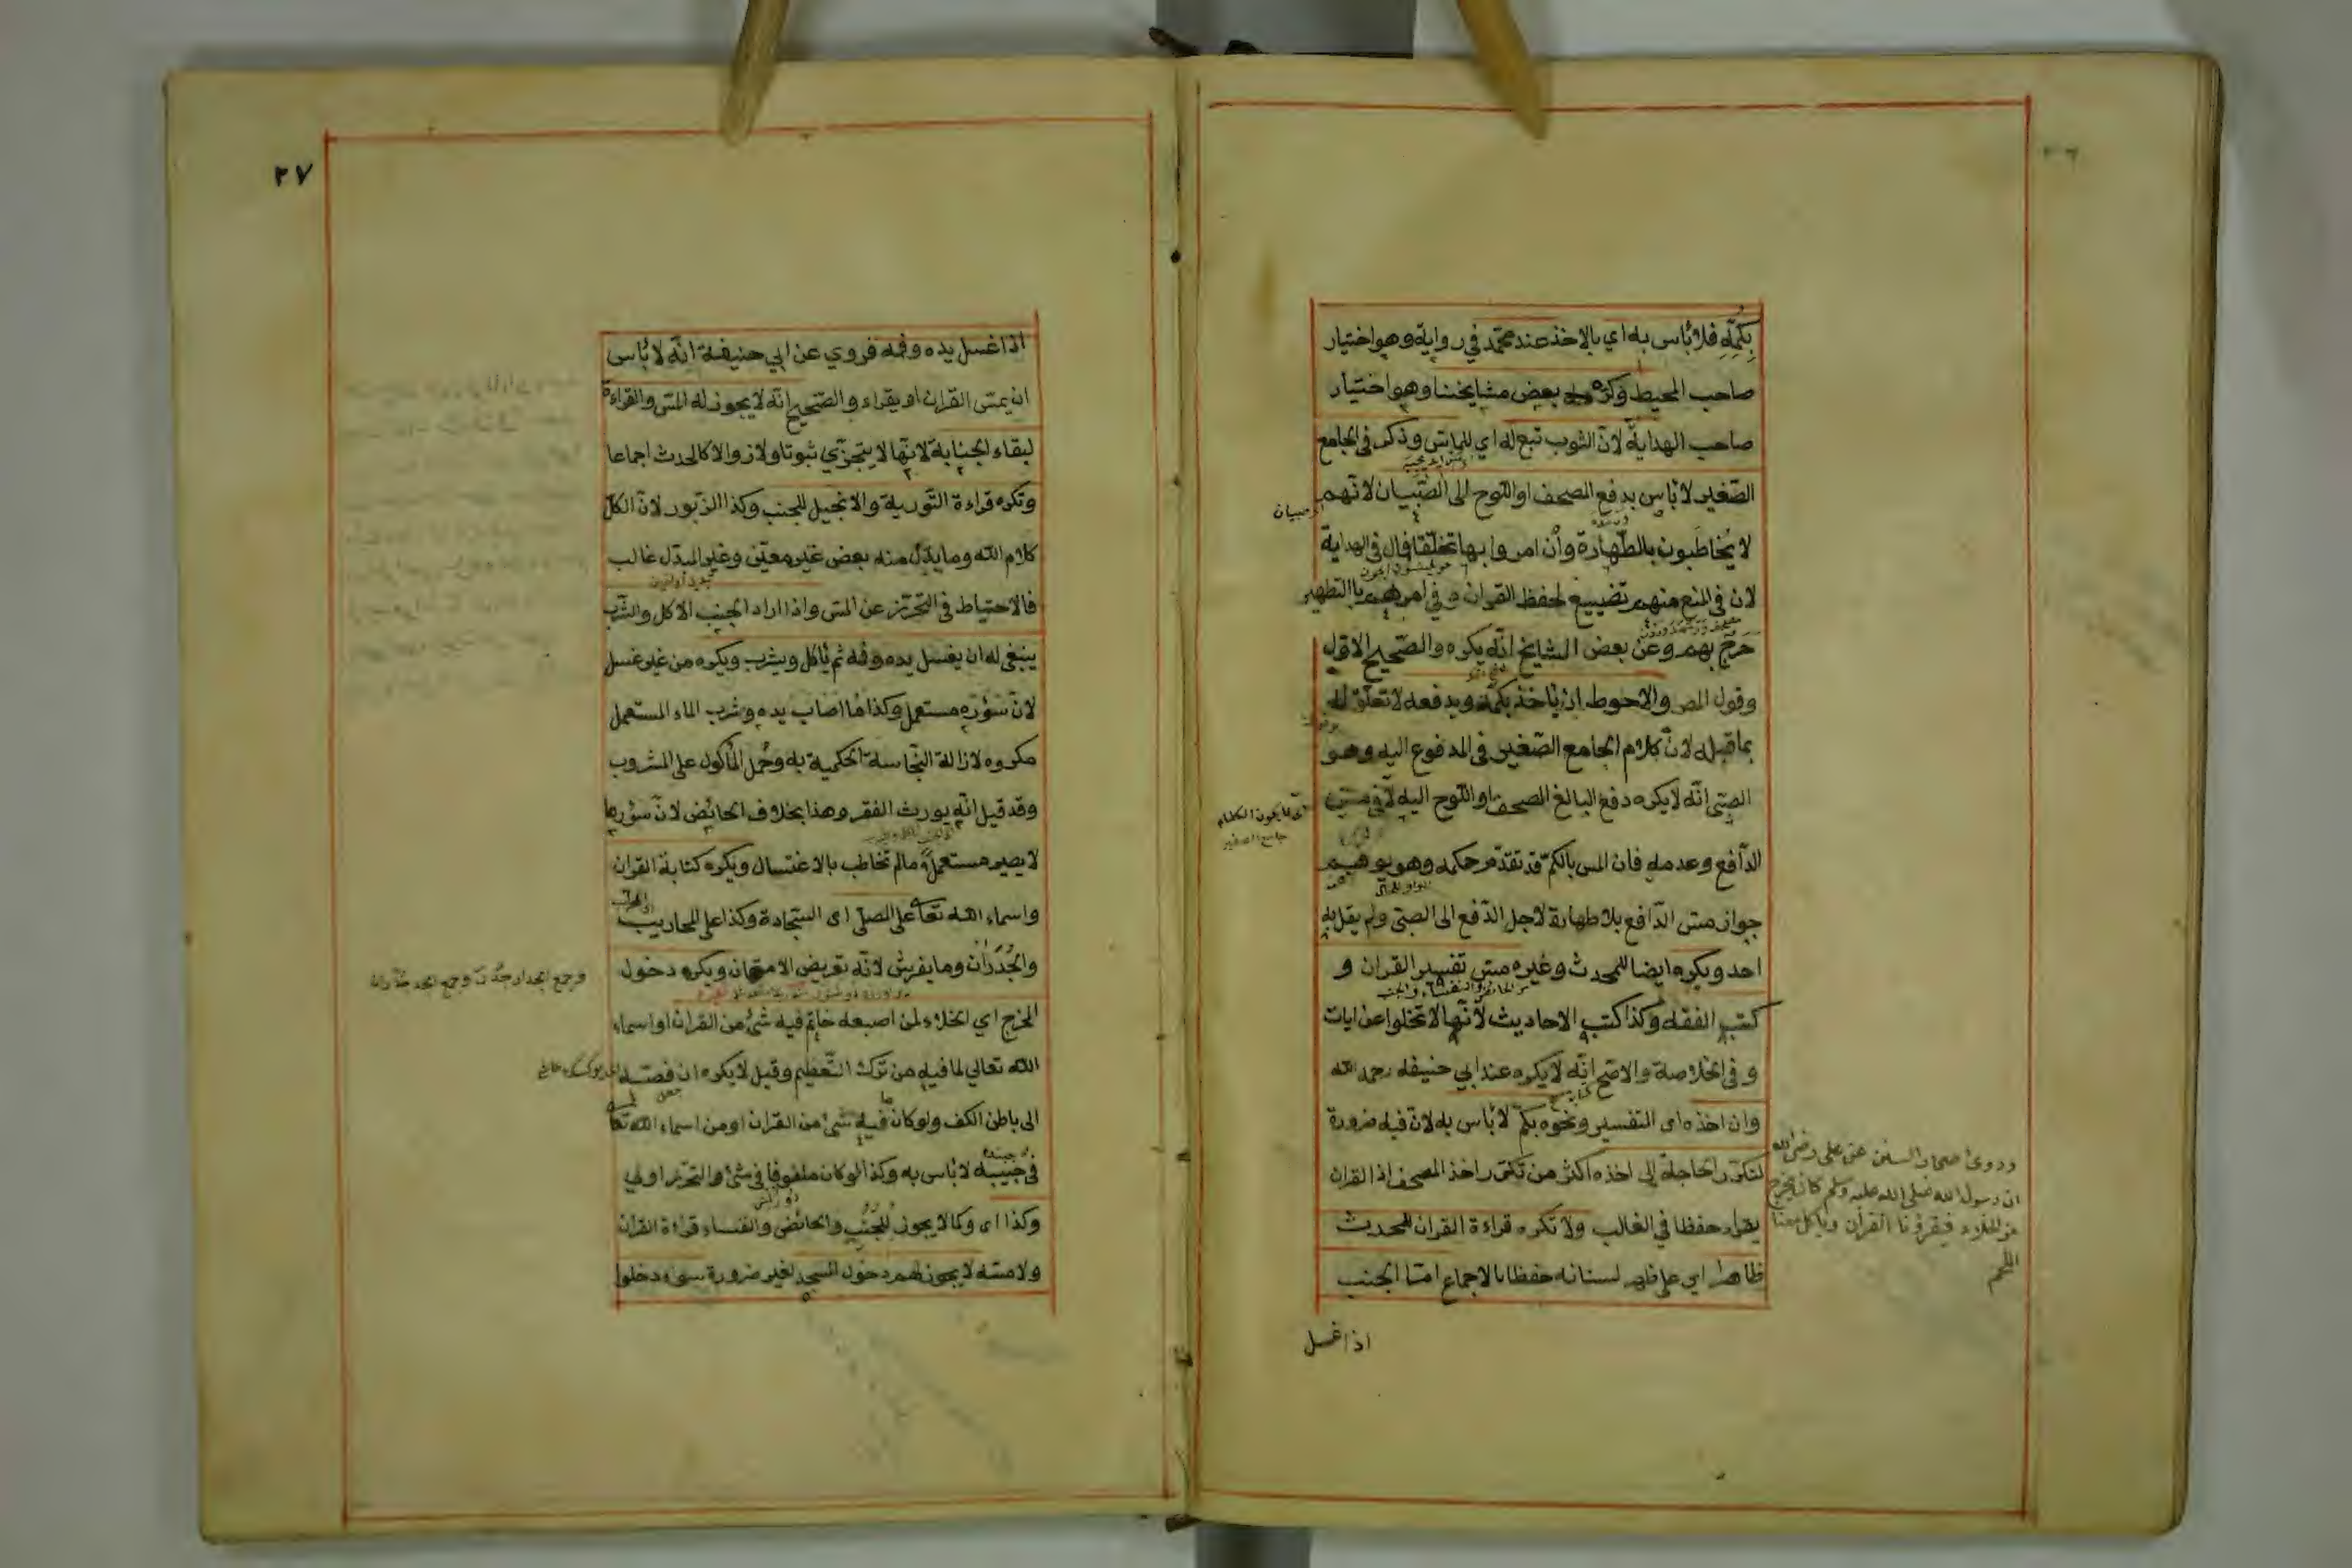 بِكُمِّهِ فلا بأس به اي بالاخذ عند محمّد في رواية وهو اختيار
صاحب المحيط وكرهه بعض مشايخنا وهو اختيار
صاحب الهداية لانّ الثوب تبع له اي للماسّ وذكر في الجامع
الصّغير لا بأس بدفع المصحف او اللّوح الى الصّبيان لانّهم
لا يُخاطَبون بالطّهارة وأن امروا بها تخلّقا قال في الهداية
لان في المنع منهم تضييع لحفظ القران و في امرهم بالتّطهير
حَرَج بهم وعن بعض المشايخ انّه يكره والصّحيح الاوّل
وقول المص والاحوط ان يأخذ بكمّه ويدفعه لا تعلّق له
بما قبله لانّ كلام الجامع الصّغير في المدفوع اليه وهو
الصّبي انّه لا يكره دفع البالغ المصحف او اللّوح اليه لا في مسّ
الدّافع وعدمه فان المس بالكمّ قد تقدّم حكمه وهو يوهم
جواز مسّ الدّافع بلا طهارة لاجل الدّفع الى الصبّي ولم يقل به
احد ويكره ايضا للمحدث وغيره مسّ تفسير القران و
كتب الفقه وكذا كتب الاحاديث لانّها لا تخلوا عن ايات
و في الخلاصة والاصّح انّه لا يكره عند ابي حنيفه رحمه الله
وان اخذه اى التفسير ونحوه بكمّ لا بأس به لانّ فيه ضرورة
لتكرّر الحاجة الى اخذه اكثر من تكرّر اخذ المصحف اذ القران
يقراء حفظا في الغالب ولا تكره قراءة القران للمحدث
ظاهرا اي على ظهر لسانه حفظا بالاجماع امّا الجنب
اذا غسل
صبيان
جامع الصغير
وروى اصحاب السنن عن على رضى الله
ان رسول الله صلى الله عليه وسلم كان يخرج
من الخلاء فيقرؤنا القرأن وياكل معنا
اللحم
٢٧
اذا غسل يده وفمه فروي عن ابي حنيفة انّه لا بأس
ان يمسّ القران او يقراء والصّحيح انّه لا يجوز له المسّ والقراءة
لبقاء الجنابة لانّها لا يتجزّي ثبوتا ولا زوالا كالحدث اجماعا
وتكره قراءة التّورية والانجيل للجنب وكذا الزّبور لانّ الكلّ
كلام الله وما بدّل منه بعض غير معيّن وغير المبدّل غالب
فالاحتياط في التحرّز عن المسّ واذا اراد الجنب الاكل والشّرب
ينبغي له ان يغسل يده وفمه ثم يأكل ويشرب ويكره من غير غسل
لانّ سؤره مستعمل وكذا ما اصاب يده وشرب الماء المستعمل
مكروه لازالة النّجاسة الحكمية به وحُمل المأكول على المشروب
وقد قيل انّه يورث الفقر وهذا بخلاف الحائض لانّ سؤرها
لا يصير مستعملاً ما لم تخاطب بالاغتسال ويكره كتابة القران
واسماء الله تعا على المصلّى اى السّجادة وكذا على المحاريب
والجُدَرَان وما يفرش لانّه تعريض الامتهان ويكره دخول
المخرج اي الخلاء لمن اصبعه خاتم فيه شئ من القران او اسماء
الله تعالى لما فيه من ترك التّعظيم وقيل لا يكره ان فصّه
الى باطن الكف ولو كان فيه شئ من القران او من اسماء الله تعا
في جيبه لا بأس به وكذا لو كان ملفوفا في شئ والتحرّز اولى
وكذا اى وكما لا يجوز للجنب والحائض والنفساء قراءة القران
ولا مسّه لا يجوز لهم دخول المسجد لغير ضرورة سواء دخلوا
وجمع الجدار جُدُر وجمع الجدر جدران